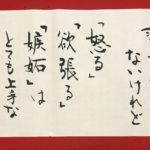 ないけれど
「怒る」
「欲張る」
「嫉妬」は
とても上手な